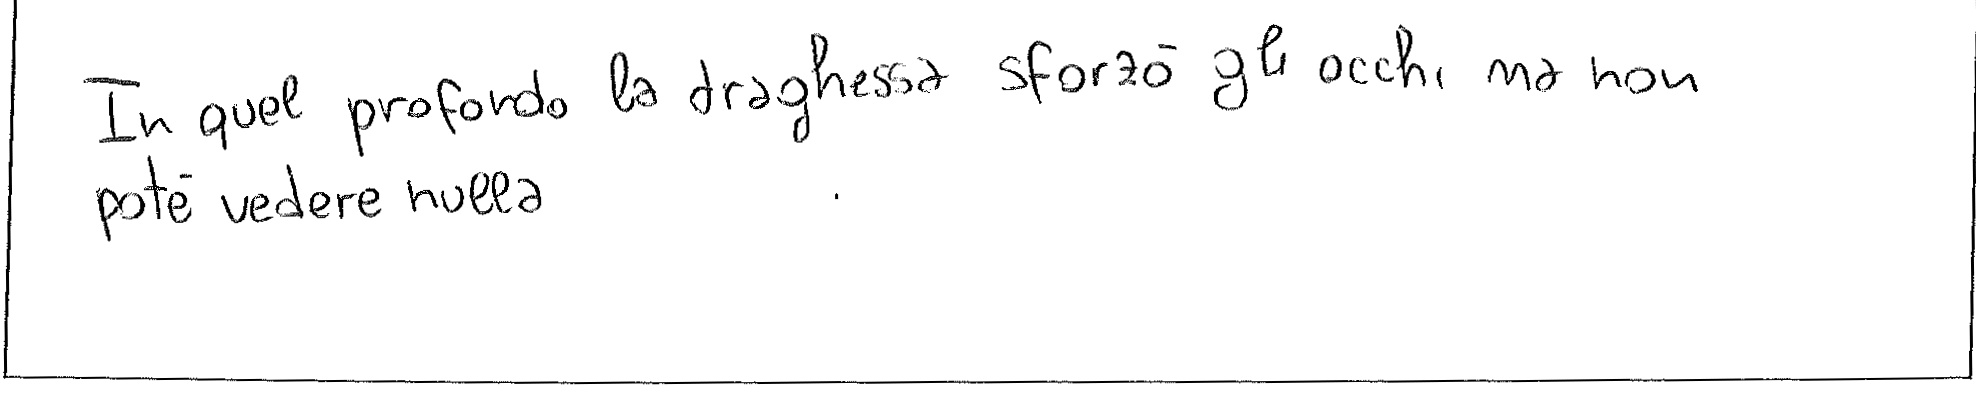 In quel profondo la draghessa sforzò gli occhi ma non
poté vedere nulla